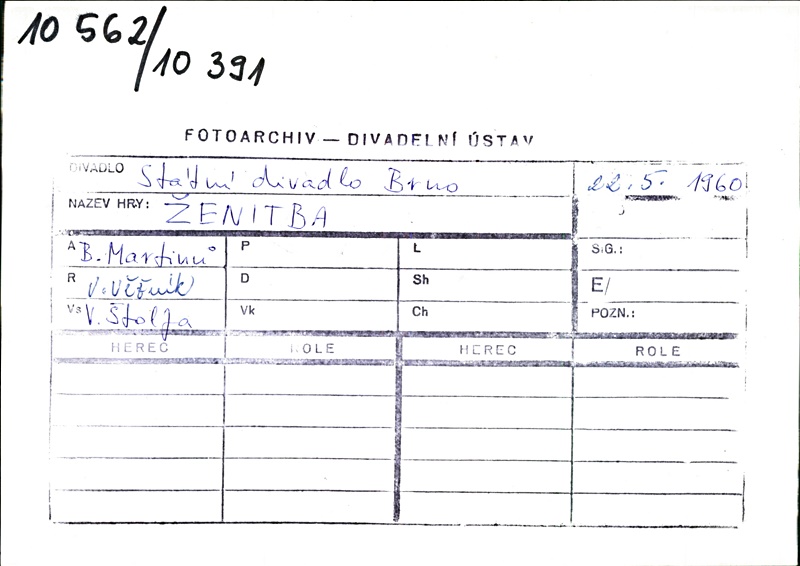 10 562/
10 391
FOTOARCHIV — DIVADELNÍ ÚSTAV
DIVADLO Státní divadlo Brno 22.5. 1960
NAZEV HRY: ŽENITBA
A B. Martinů P L SIG.:
R V. Věžník D Sh E/
Vs V. Štolfa Vk Ch POZN.:
HEREC ROLE HEREC ROLE